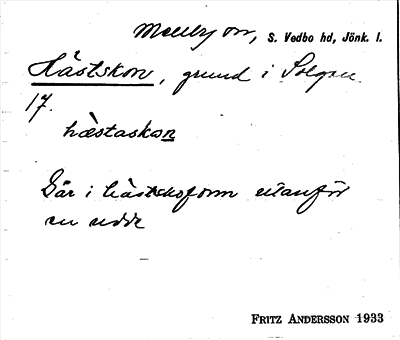 Mellby sn, S. Vedbo hd, Jönk. l.
Hästskon, grund i Solgen.
17.
hæ̀staskon
Går i hästskoform utanför
en udde
FRITZ ANDERSSON 1933